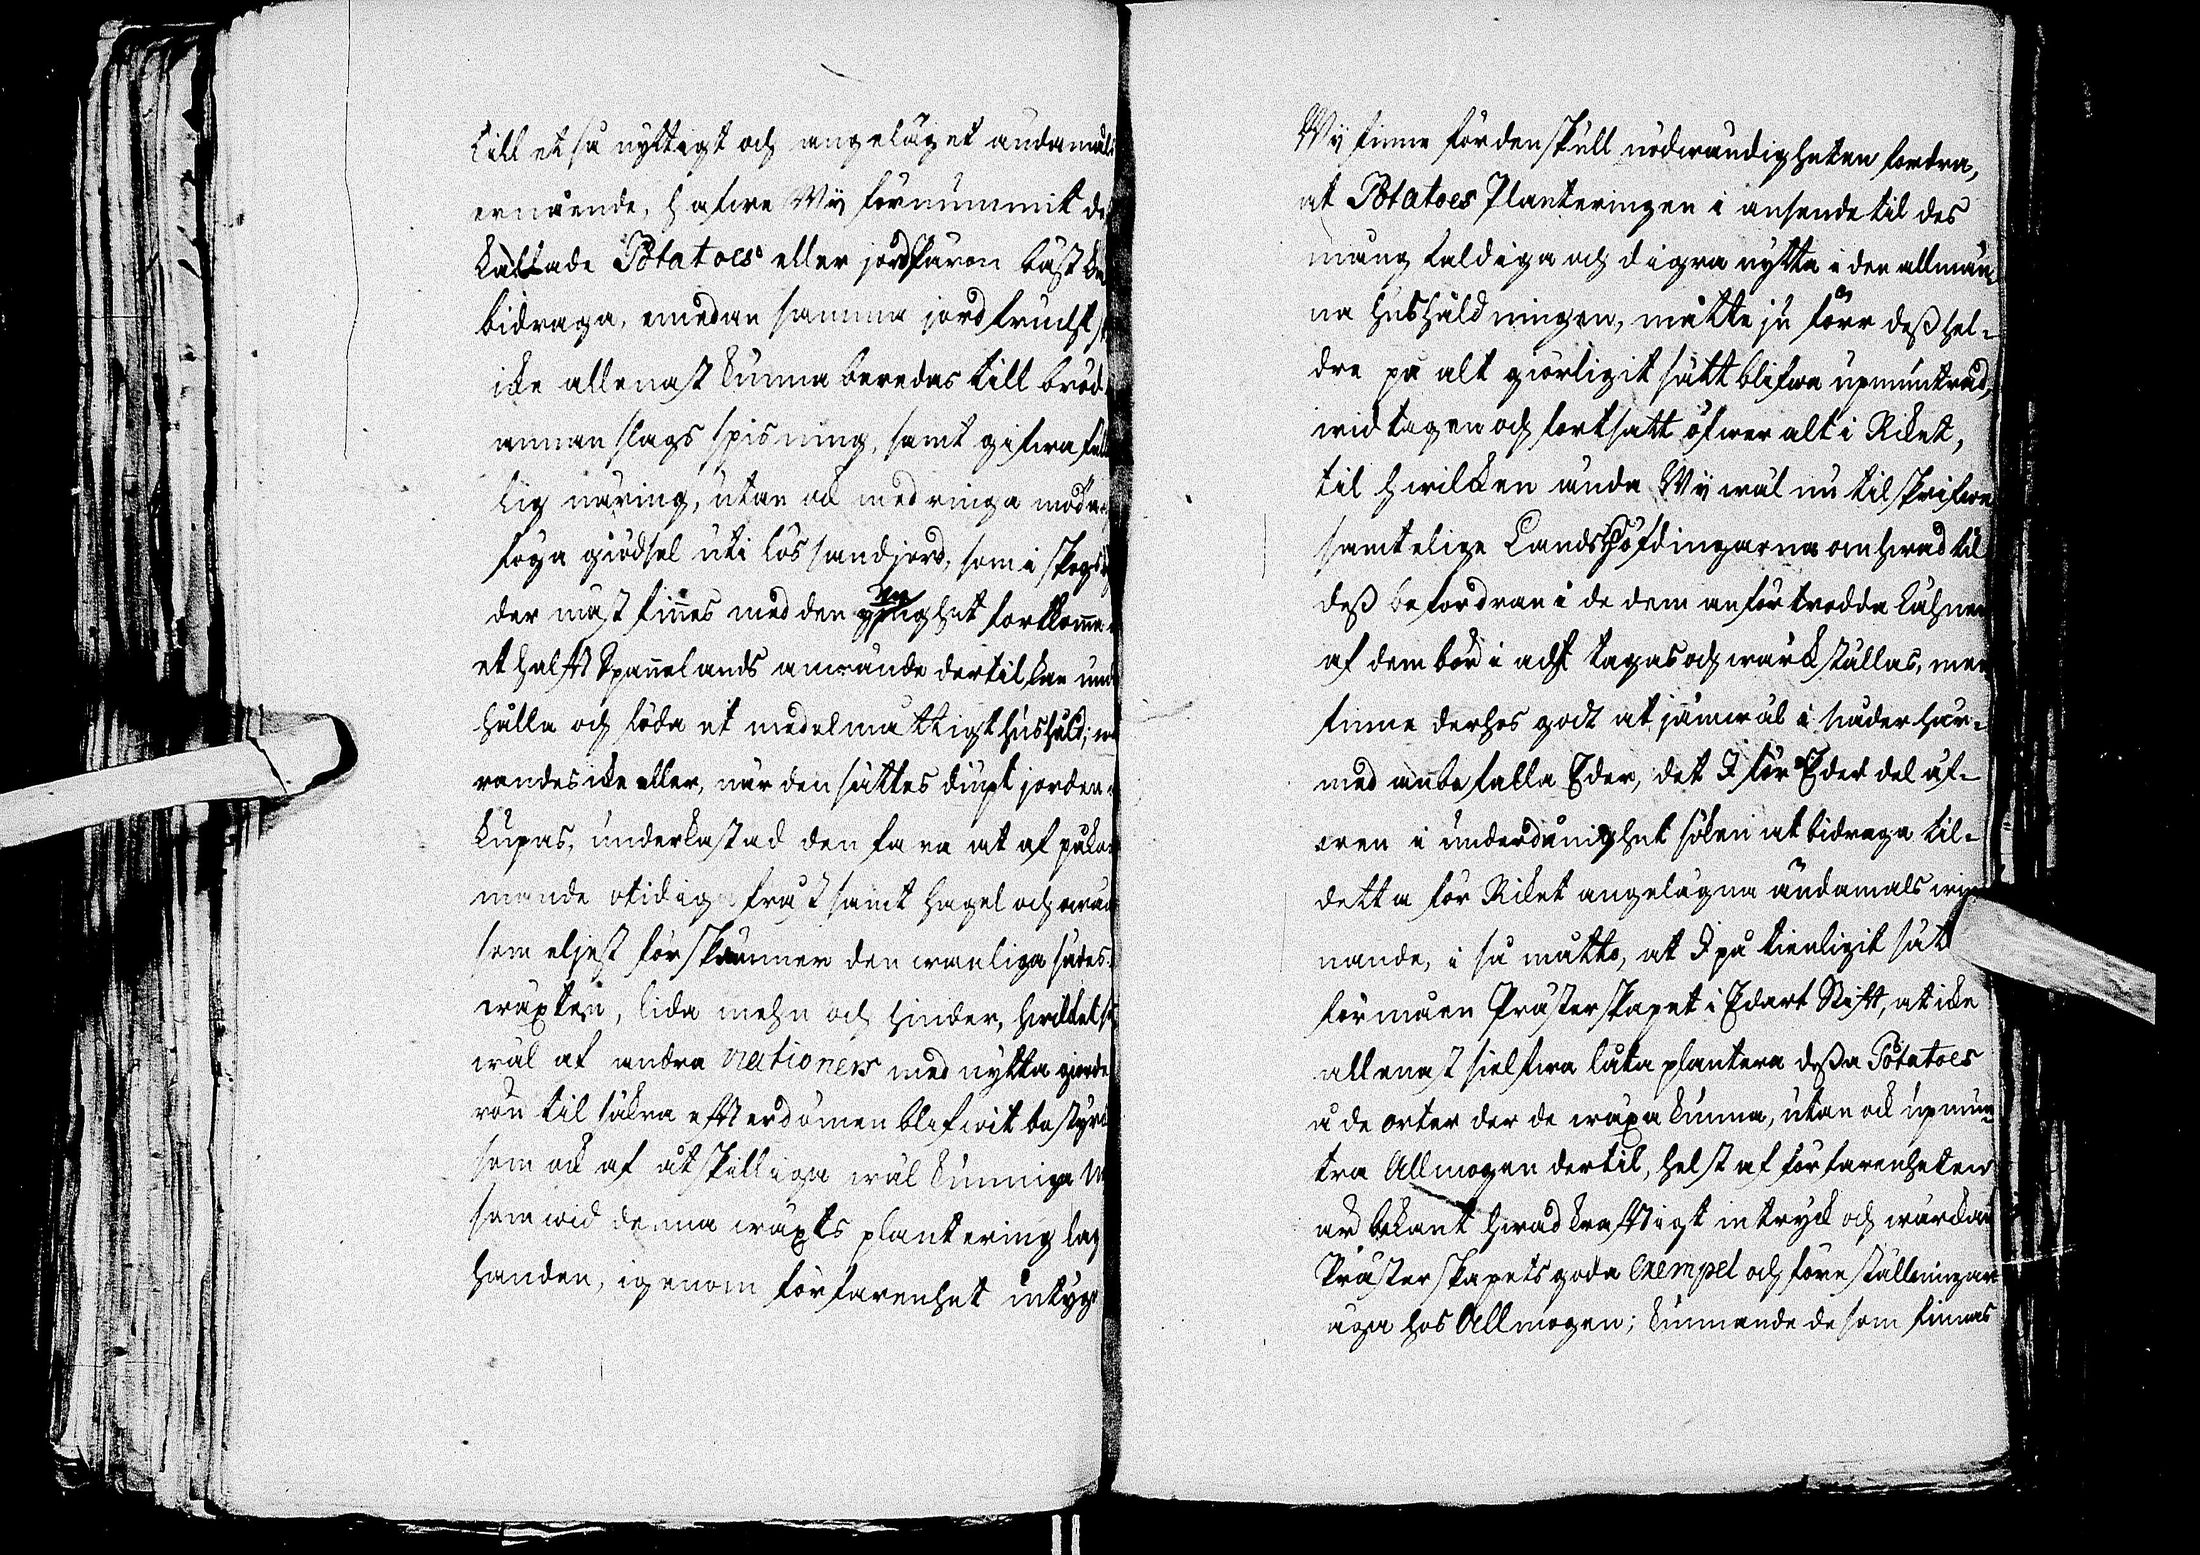 till et så nyttigt och angeläget ändamåls
ernående, hafwe Wij förnummit de
kallade Potatoes eller jordpäron bäst kun
bidraga, emedan samma jordfrucht
icke allenast kunna beredas till bröd
annan slags spisning, samt gifwa full
lig näring, utan ock med ringa möda och
föga giödsel uti lös sandjord, som i skogs
der mäst finnes med den ymnighet fortkomma
et halft Spannelands areande dertil kan und
hålla och föda et medelmåttigt hushåld;
randes icke eller, när den sättes diupt i jorden
kupas, underkastad den fara at af påkom
mande otidig frost samt hagel och
som eljest förskämmer den wanliga sädes
wäxten, lida mehn och hinder, hwilket
wäl af andra nationers med nytta giorde
rön til säkra efterdömen blifwit bestyrkt
som ock af åtskilliga wäl kunniga
som wid denna wäxts plantering lag
handen, igenom förfarenhet intyg
Wij finne fördenskull nödwändigheten fordra,
at Potatoes Planteringen i anseende til des
mångfaldiga och digra nytta i den allmän-
na hushåldningen, måtte ju förr dess hel-
dre på alt giörligit sätt blifwa upmuntrad,
widtagen och fortsatt öfwer alt i Riket,
til hwilken ända Wij wäl nu tilskrifwe
samtelige Landshöfdingarna om hwad til
dess befordran i de dem anförtrodda Lähnen
af dem bör i acht tagas och wärkställas, men
finne derhos godt at jämwäl i nåder här-
med anbefalla Eder, det I för Eder del äf-
wen i underdånighet söken at bidraga til
detta för Riket angelägna ändamåls win
nande, i så måtto, at I på tienligit sätt
förmåen Prästerskapet i Edart Stift, at icke
allenast sielfwa låta plantera dessa Potatoes
å de orter der de wäxa kunna, utan ock upmun-
tra Allmogen dertil, helst af förfarenheten
är bekant hwad kraftigt intryck och wärckan
Prästerskapets goda Exempel och föreställningar
äga hos Allmogen; kunnande de som finnas